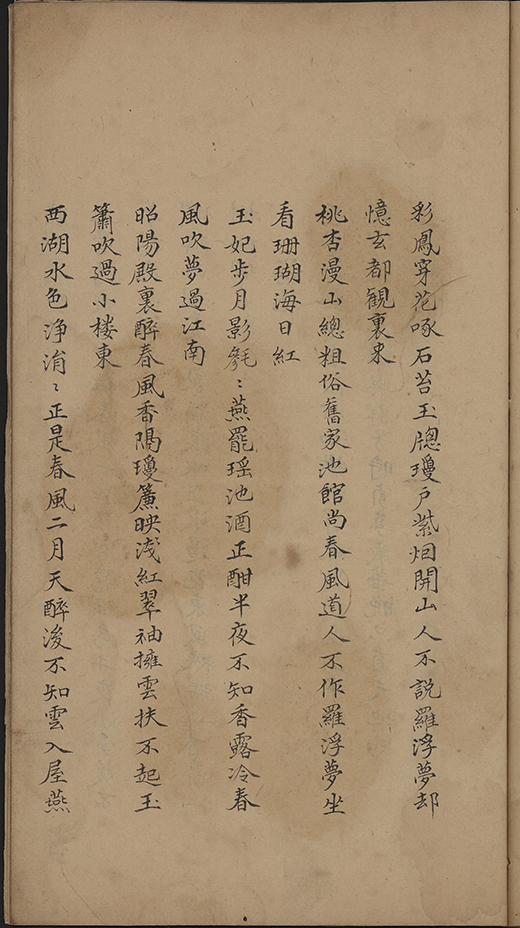 彩鳳穿花啄石苔玉牕瓊戶紫烟開山人不說羅浮夢却
憶玄都観裏来
桃杏漫山總粗俗舊家池館尚春風道人不作羅浮夢坐
看珊瑚海日紅
玉妃步月影毿〻燕罷瑶池酒正酣半夜不知香露冷春
風吹夢過江南
昭陽殿裏醉春風香隔瓊簾映淺紅翠袖擁雲扶不起玉
簫吹過小楼東
西湖水色淨涓〻正是春風二月天醉後不知雲入屋燕